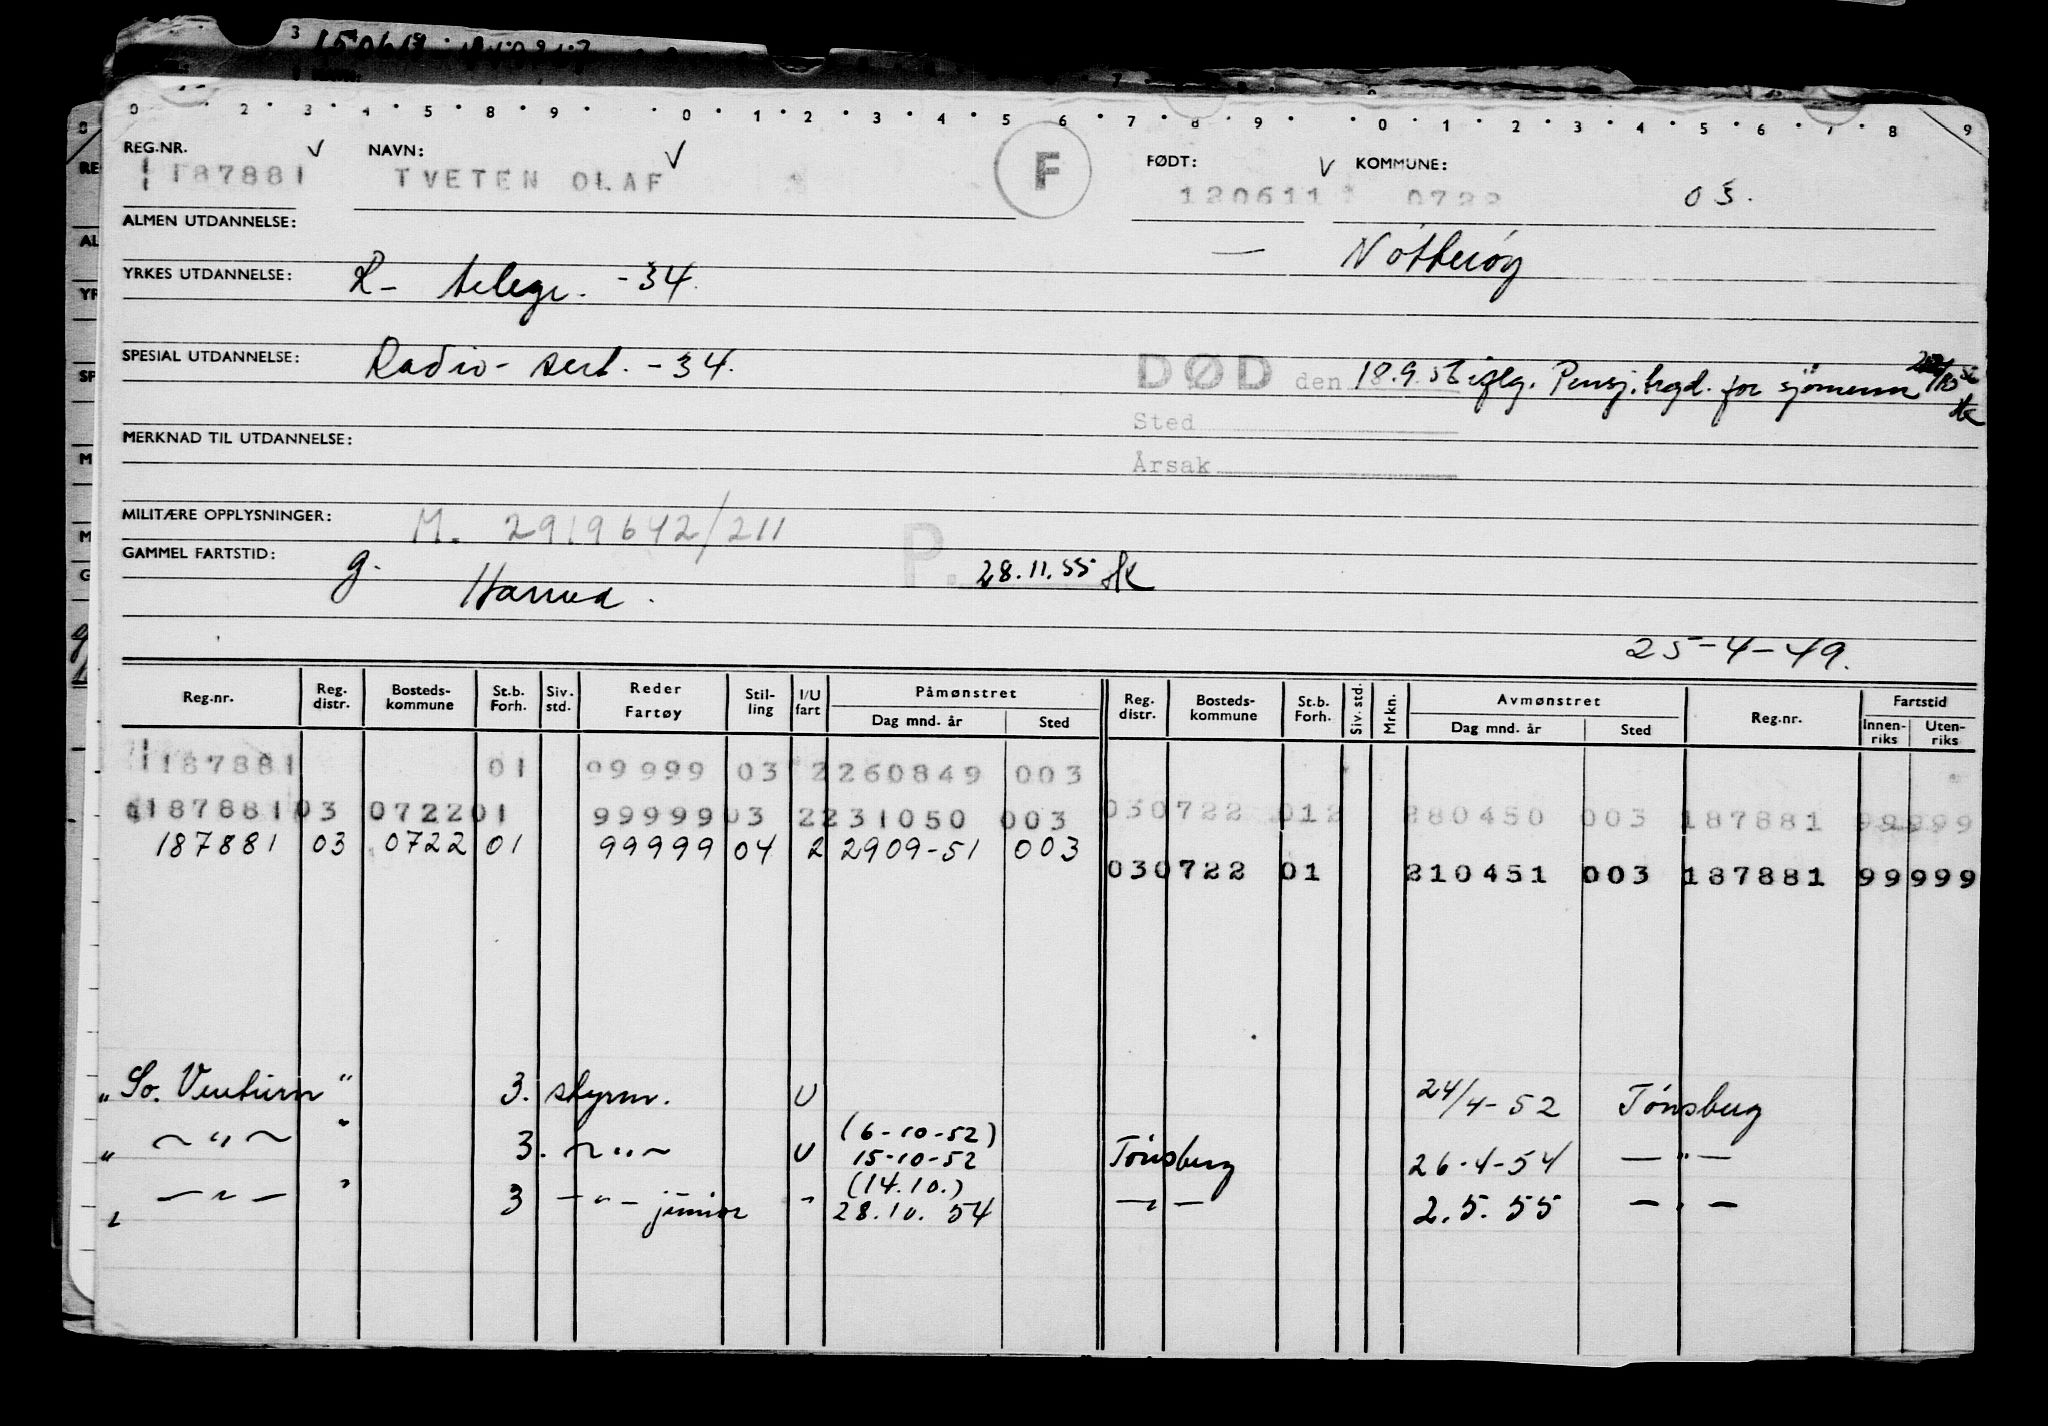 0 2 3 4 5 8 9 0 1 2 3 4 5 6 7 8 9 0 1 2 3 4 5 6 7 8 9
REG.NR. NAVN: F FØDT: KOMMUNE:
187881 TVETEN OLAF 120611 0722 03.
ALMEN UTDANNELSE: — Nötteröy
YRKES UTDANNELSE: R- telegr. -34.
SPESIAL UTDANNELSE: Radio- sert. -34. DØD den 18.9.56 iflg. Pensj.trgd. for sjömenn
Sted
MERKNAD TIL UTDANNELSE:
Årsak
MILITÆRE OPPLYSNINGER: M. 2919642/211
GAMMEL FARTSTID: g. P. 28.11.55 HK
25-4-49.
Reg.nr. Reg. distr. Bosteds- kommune St.b. Forh. Siv. std. Reder Fartøy Stil- ling I/U fart Påmønstret Dag mnd. år Sted Reg. distr. Bosteds- kommune St.b. Forh. Siv. std. Mrkn. Avmønstret Dag mnd. år Sted Reg.nr. Fartstid Innen- riks Uten- riks
187881 01 99999 03 2 260849 003
187881 03 0722 01 99999 03 2 231050 003 03 0722 012 280450 003 187881 99999
187881 03 0722 01 99999 04 2 2909-51 003
03 0722 01 210451 003 187881 99999
"So. Venturer" 3. styrm. U 24/4-52 Tönsberg
" ~ " ~ " 3. ~ " ~ U (6-10-52) 15-10-52 Tönsberg 26-4-54 — " —
— " — " 3 — " — junior " (14.10.) 28.10. 54 — " — 2.5.55 — " —